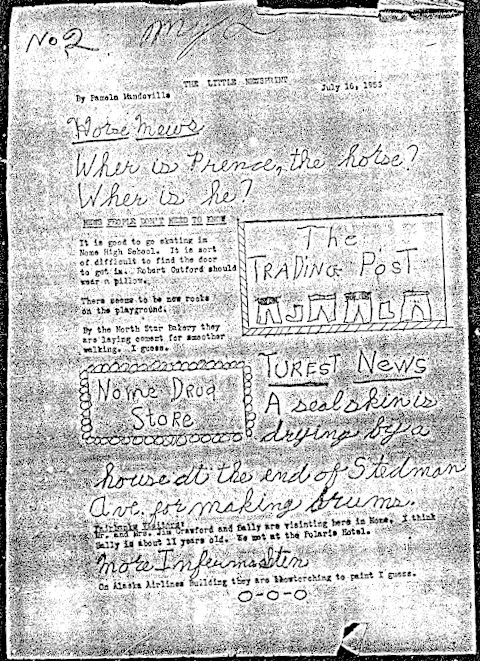 No 2
THE LITTLE NEWSPRINT
By Pamela Mandeville
July 16, 1955
Horse News
Wher is Prence, the horse?
Wher is he?
NEWS PEOPLE DON'T NEED TO KNOW
It is good to go skating in
Nome High School. It is sort
of difficult to find the door
to get in. Robert Outford should
wear a pillow.
There seems to be new rocks
on the playground.
By the North Star Bakery they
are laying cement for smoother
walking. I guess.
The
TRADING POST
Nome Drug
Store
TUREST News
A seal skin is
drying by a
house at the end of Stedman
Ave. for making drums.
Fairbanks Visitors:
Mr. and Mrs. Jim Crawford and Sally are visinting here in Nome. I think
Sally is about 11 years old. We met at the Polaris Hotel.
more Infermashten
On Alaska Airlines Building they are blowtorching to paint I guess.
O-O-O